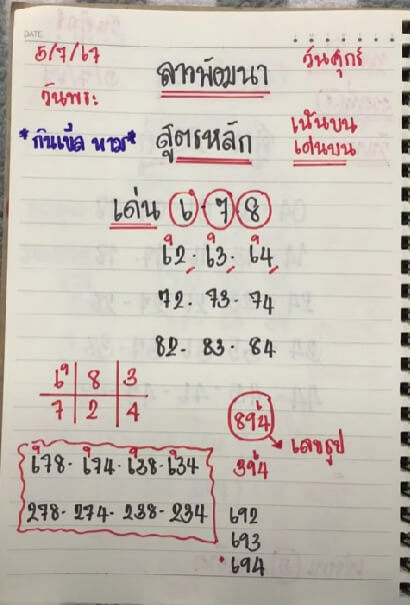 DATE
5/7/67
ลาวพัฒนา
วันศุกร์
วันพระ
สูตรหลัก
เน้นบน
เด่นบน
เด่น 6·7·8
62·63·64
72·73·74
82·83·84
6 8 3
7 2 4
894
เลขธูป
394
678·674·638·634
278·274·238·234
692
693
694